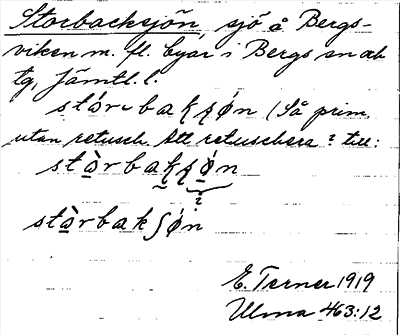 Storbacksjön, sjö å Bergs-
viken m. fl. byar i Bergs sn och
tg, Jämtl. l.
stór-bakʂǿn (Så prim.
utan retusch. Att retuschera? till:
stàrbakʂøn
?
stàrbakʃǿn
E. Terner 1919
Ulma 463:12